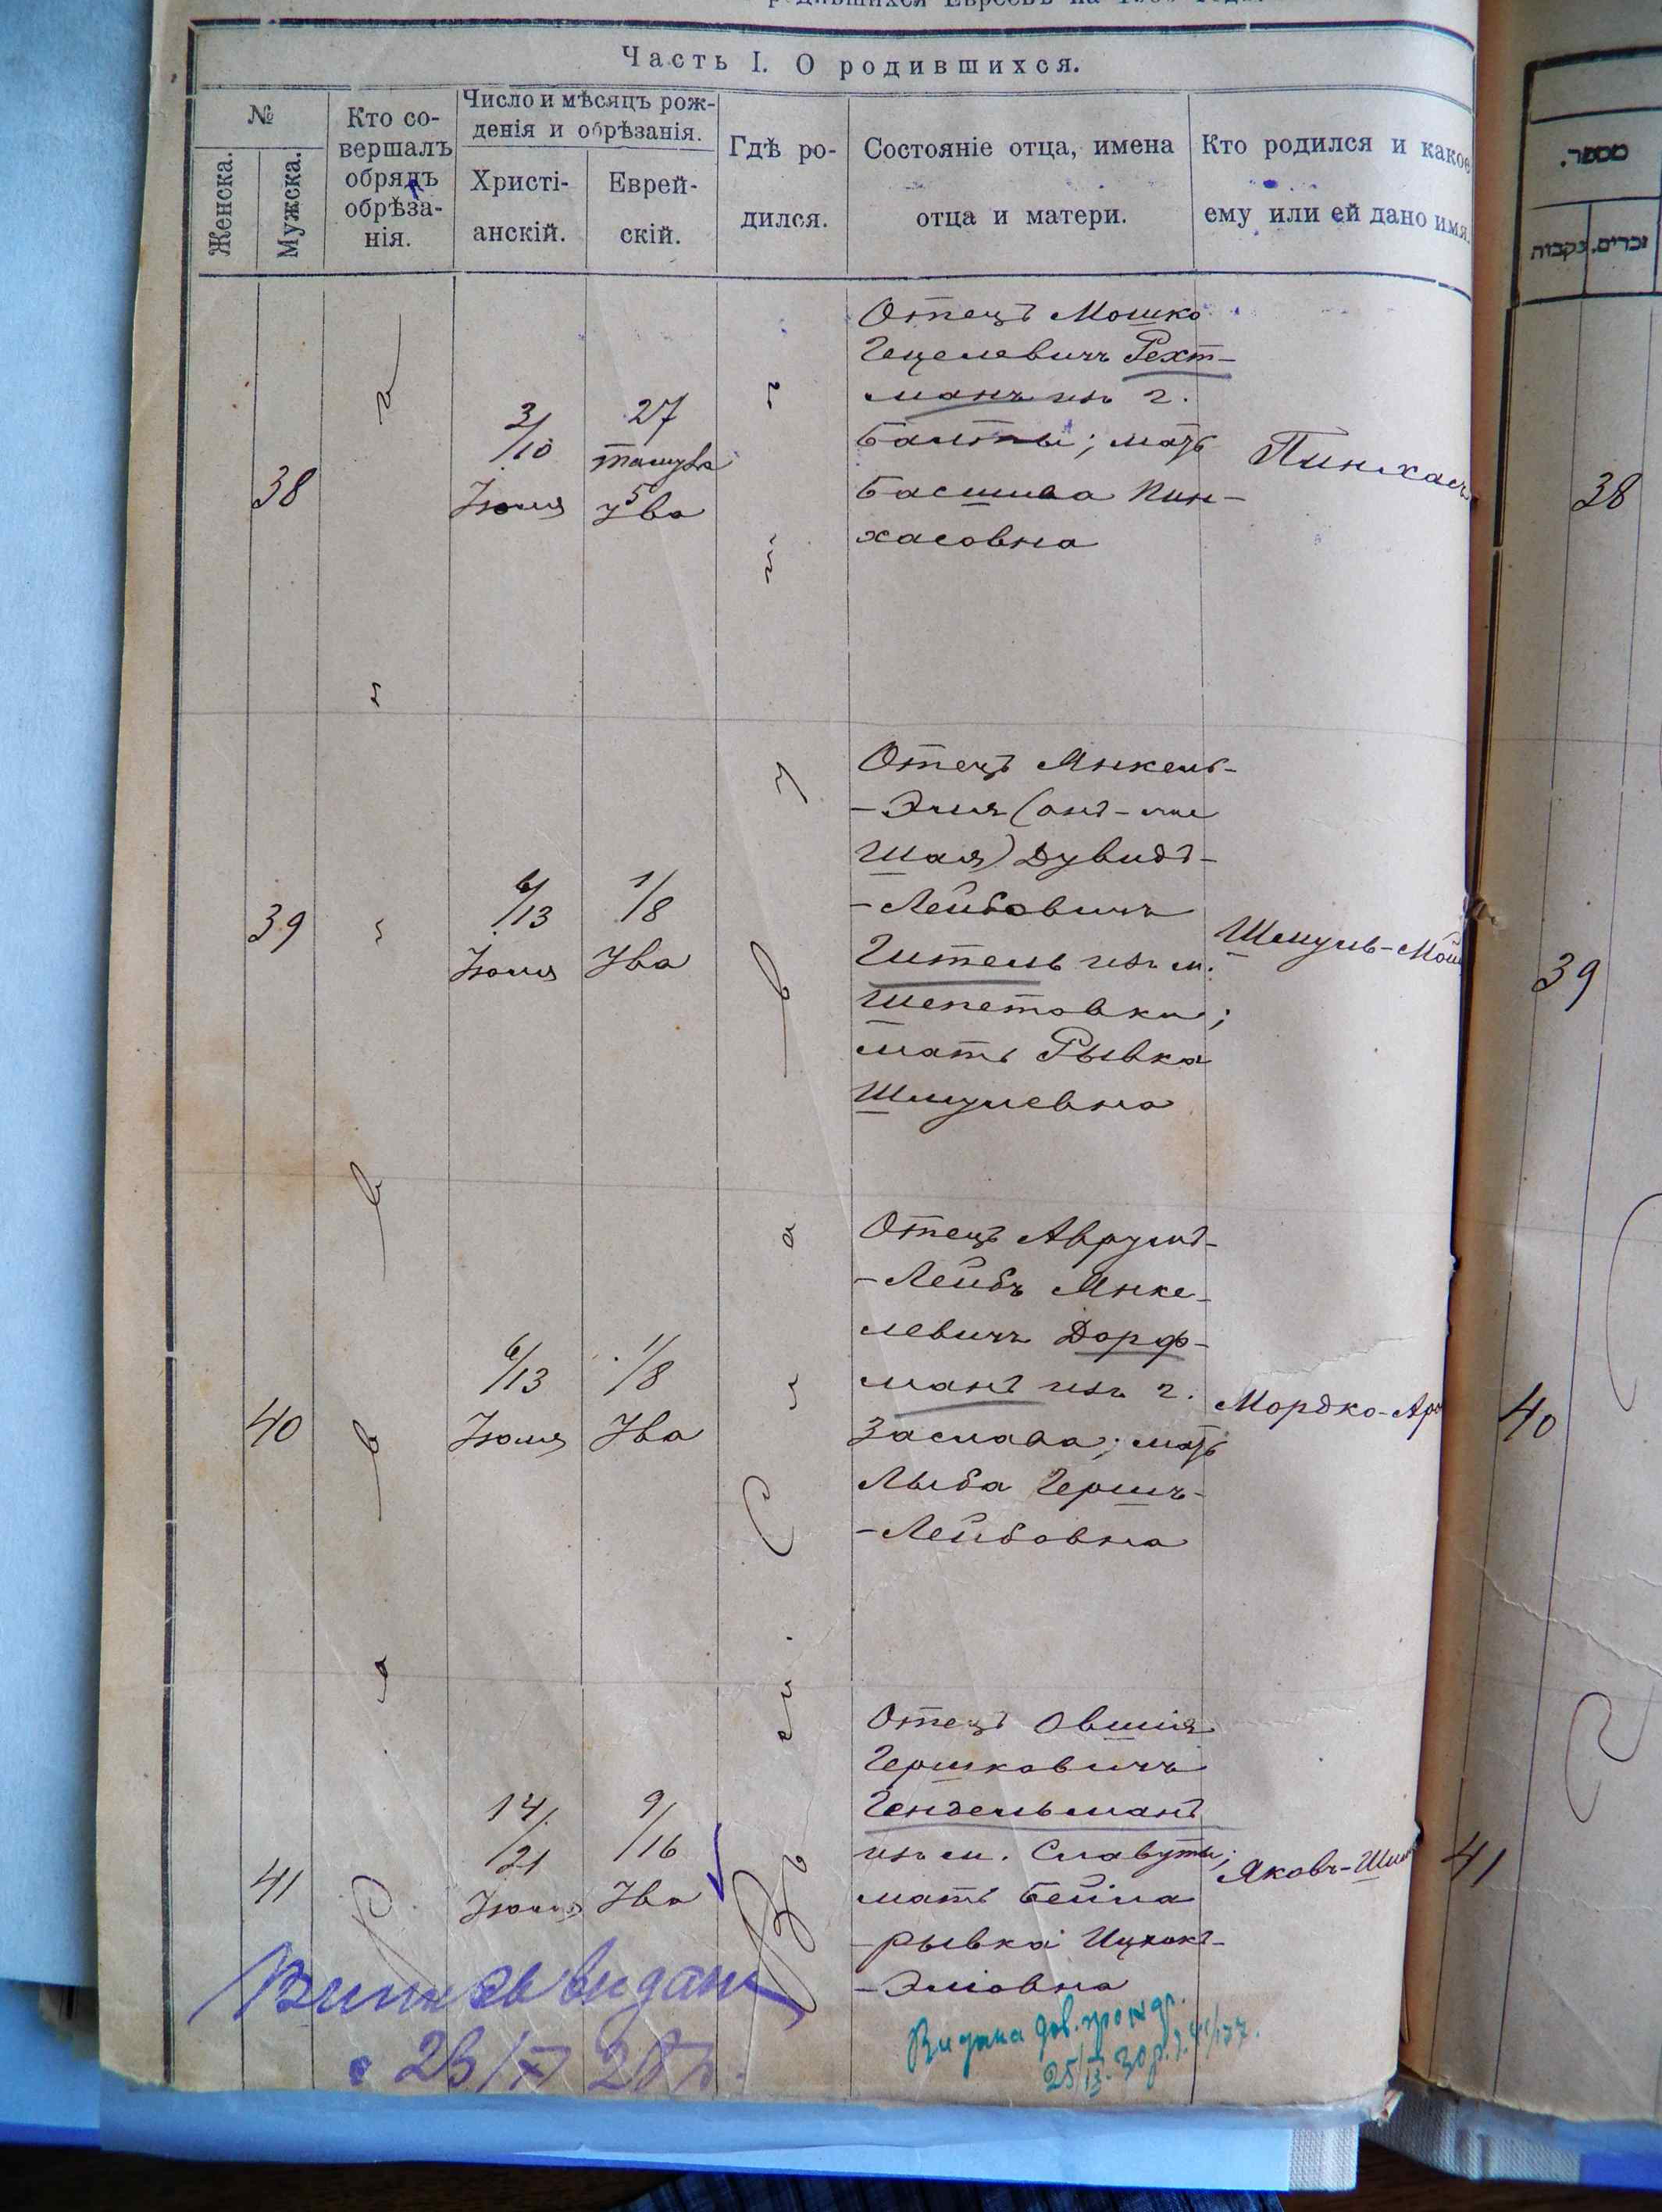 Часть I. О родившихся.
№
Женска.
Мужска.
Кто со-
вершалъ
обрядъ
обрѣза-
нія.
Число и мѣсяцъ рож-
денія и обрѣзанія.
Христі-
анскій.
Еврей-
скій.
Гдѣ ро-
дился.
Состояніе отца, имена
отца и матери.
Кто родился и какое
ему или ей дано имя.
38
3/10
Іюля
27
5
Ува
Отецъ Мошко
Гецелевичъ Рехт-
манъ изъ г.
Балты; мать
Басшива Пин-
хасовна
Пинхасъ
39
6/13
Іюля
1/8
Ува
Отецъ Янкель-
-Эля (онъ-же
Шая) Дувидъ-
-Лейбовичъ
Гитель изъ м.
Шепетовки;
мать Рывка
Шмулевна
Шмуль-Мош
40
6/13
Іюля
1/8
Ува
Отецъ Аврумъ-
-Лейбъ Янке-
левичъ Дорф-
манъ изъ г.
Заслава; мать
Лыба Гершъ-
-Лейбовна
Мордко-Аро
41
14/21
Іюля
9/16
Ува
Отецъ Овшія
Гершковичъ
Гендельманъ
изъ м. Славуты;
мать Бейла
-Рывка Ицхокъ-
-Эліовна
Яковъ-Шим
מספר.
זכרים.
נקבות
38
39
40
41